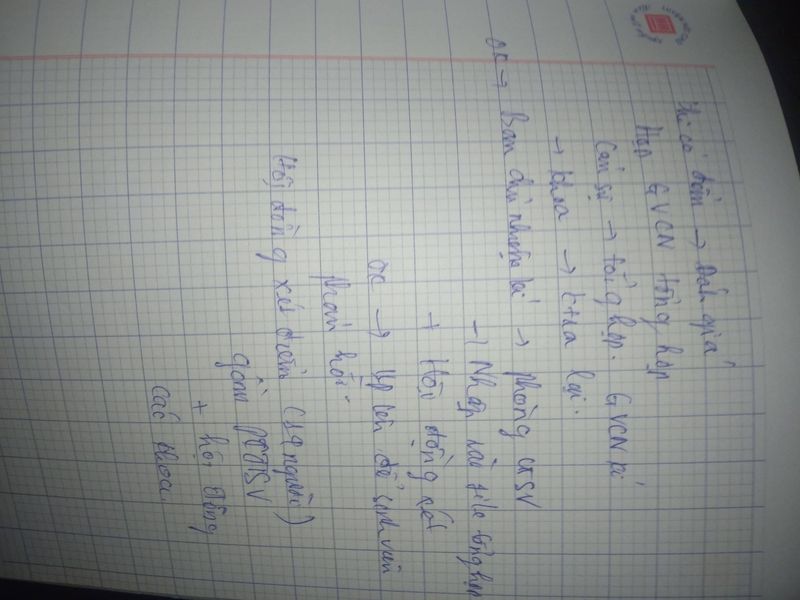 Khi có điểm → Đánh giá
Họp GVCN tổng hợp
Cán sự → tổng hợp. GVCN kí
→ khoa → ktra lại.
OK → Ban chủ nhiệm kí → phòng CTSV
→ Nhập vào file tổng hợp
+ Hội đồng xét
OK → up lên để sinh viên
phản hồi.
Hội đồng xét điểm (19 người)
gồm PCTSV
+ hội đồng
các khoa